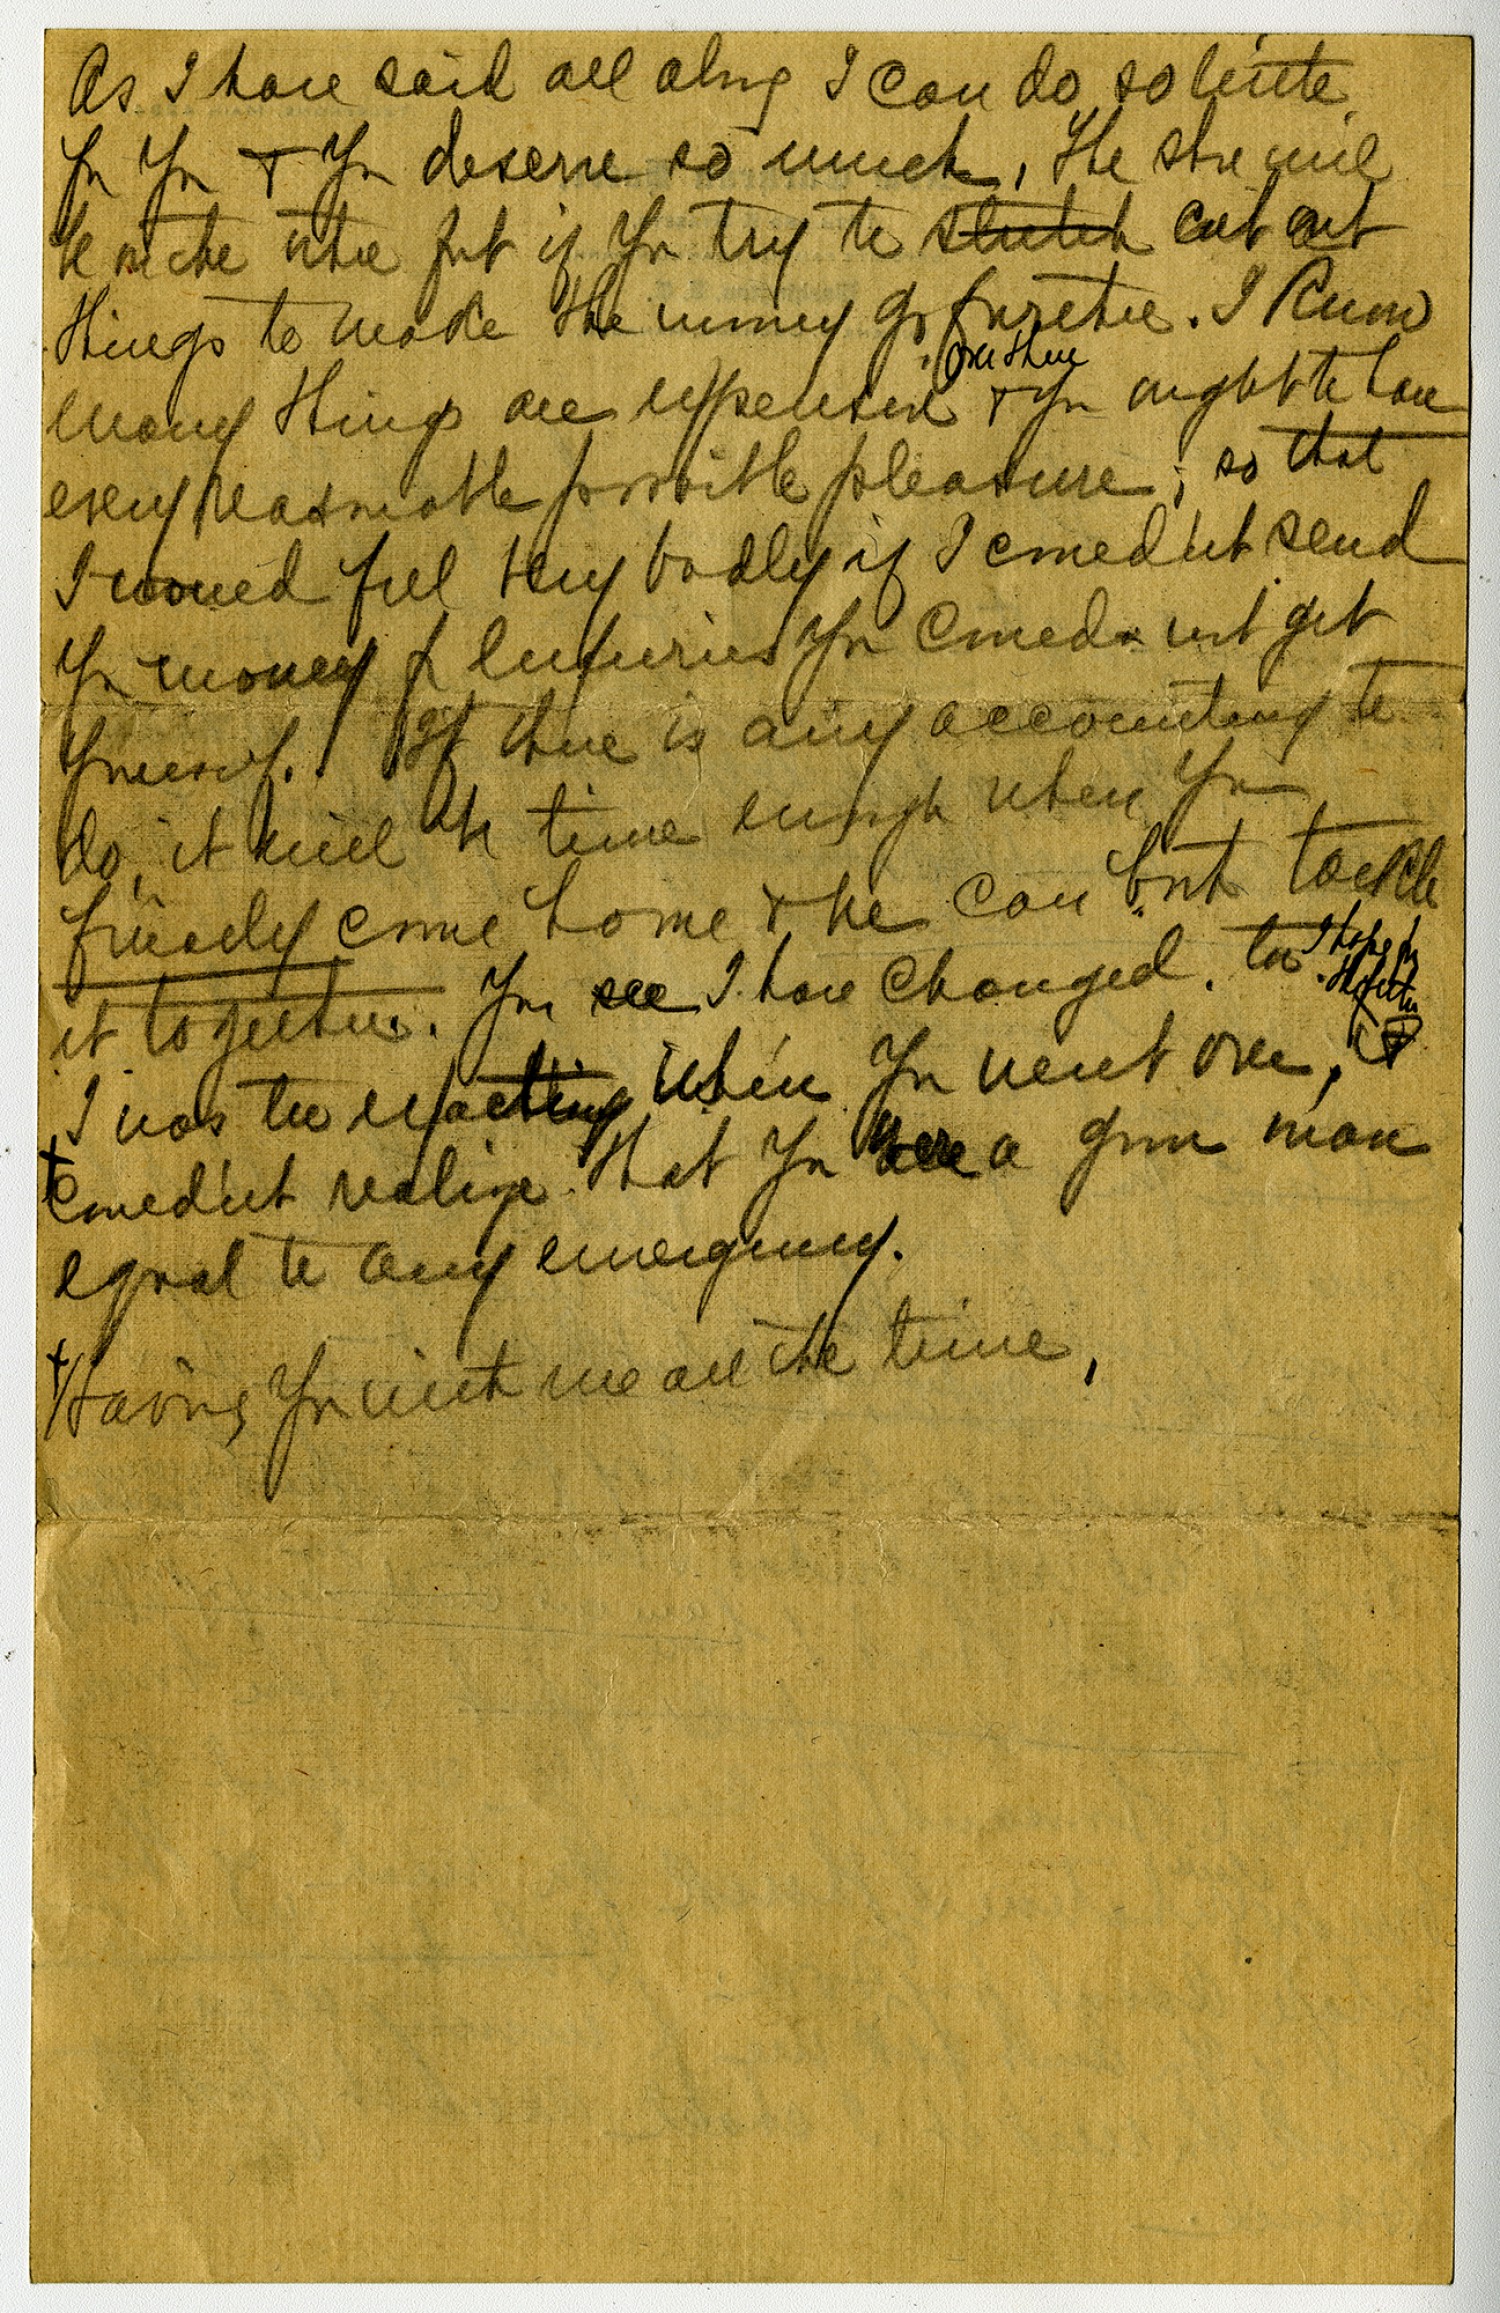 As I have said all along I can do so little
for you & you deserve so much, the shoe will
be on the other foot if you try to stretch cut out
things to make the money go further. I know
many things are expensive over there & you ought to have
every reasonable possible pleasure; so that
I would feel very badly if I couldn't send
you money for luxuries you could not get
yourself. If there is any accounting to
do, it will be time enough when you
finally come home & we can both tackle
it together. You see I have changed. too I hope for the better
I was too exacting when you went over, &
couldn't realize that you were a grown man
equal to any emergency.
Having you with me all the time,